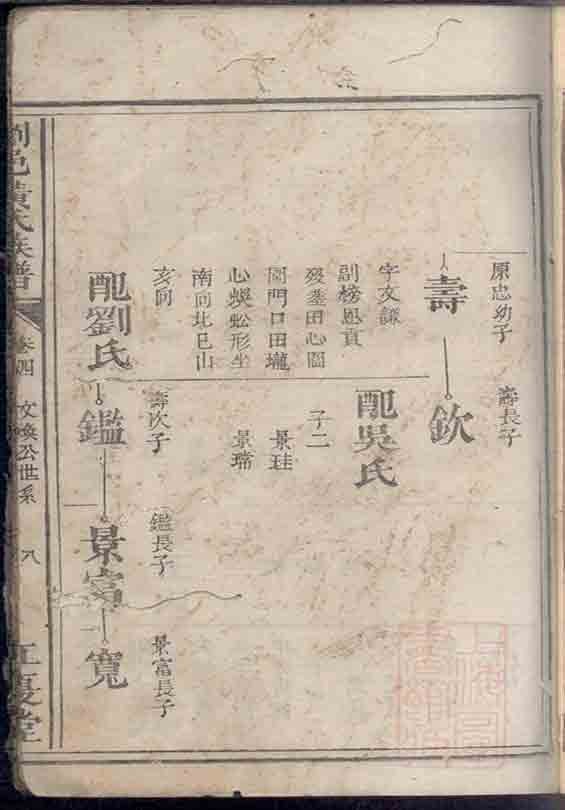 原忠幼子
壽
壽長子
欽
字文謙
副榜恩貢
歿塟田心圖
岡門口田壠
心蜈蚣形坐
南向北巳山
亥向
配吳氏
子二
景珪
景瑞
配劉氏
壽次子
鑑
鑑長子
景富
景富長子
寬
瀏邑黃氏族譜
卷四
文煥公世系
八
江夏堂